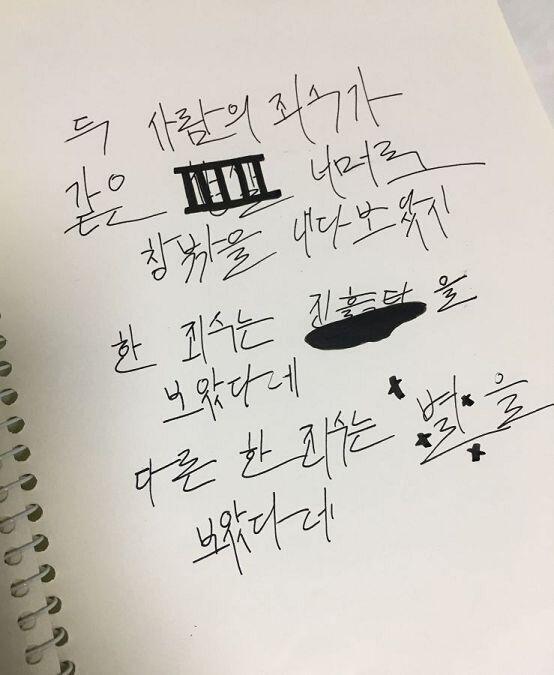 두 사람의 죄수가
같은 너머로
창밖을 내다보았지
한 죄수는 진흙탕을
보았다네
다른 한 죄수는 별을
보았다네